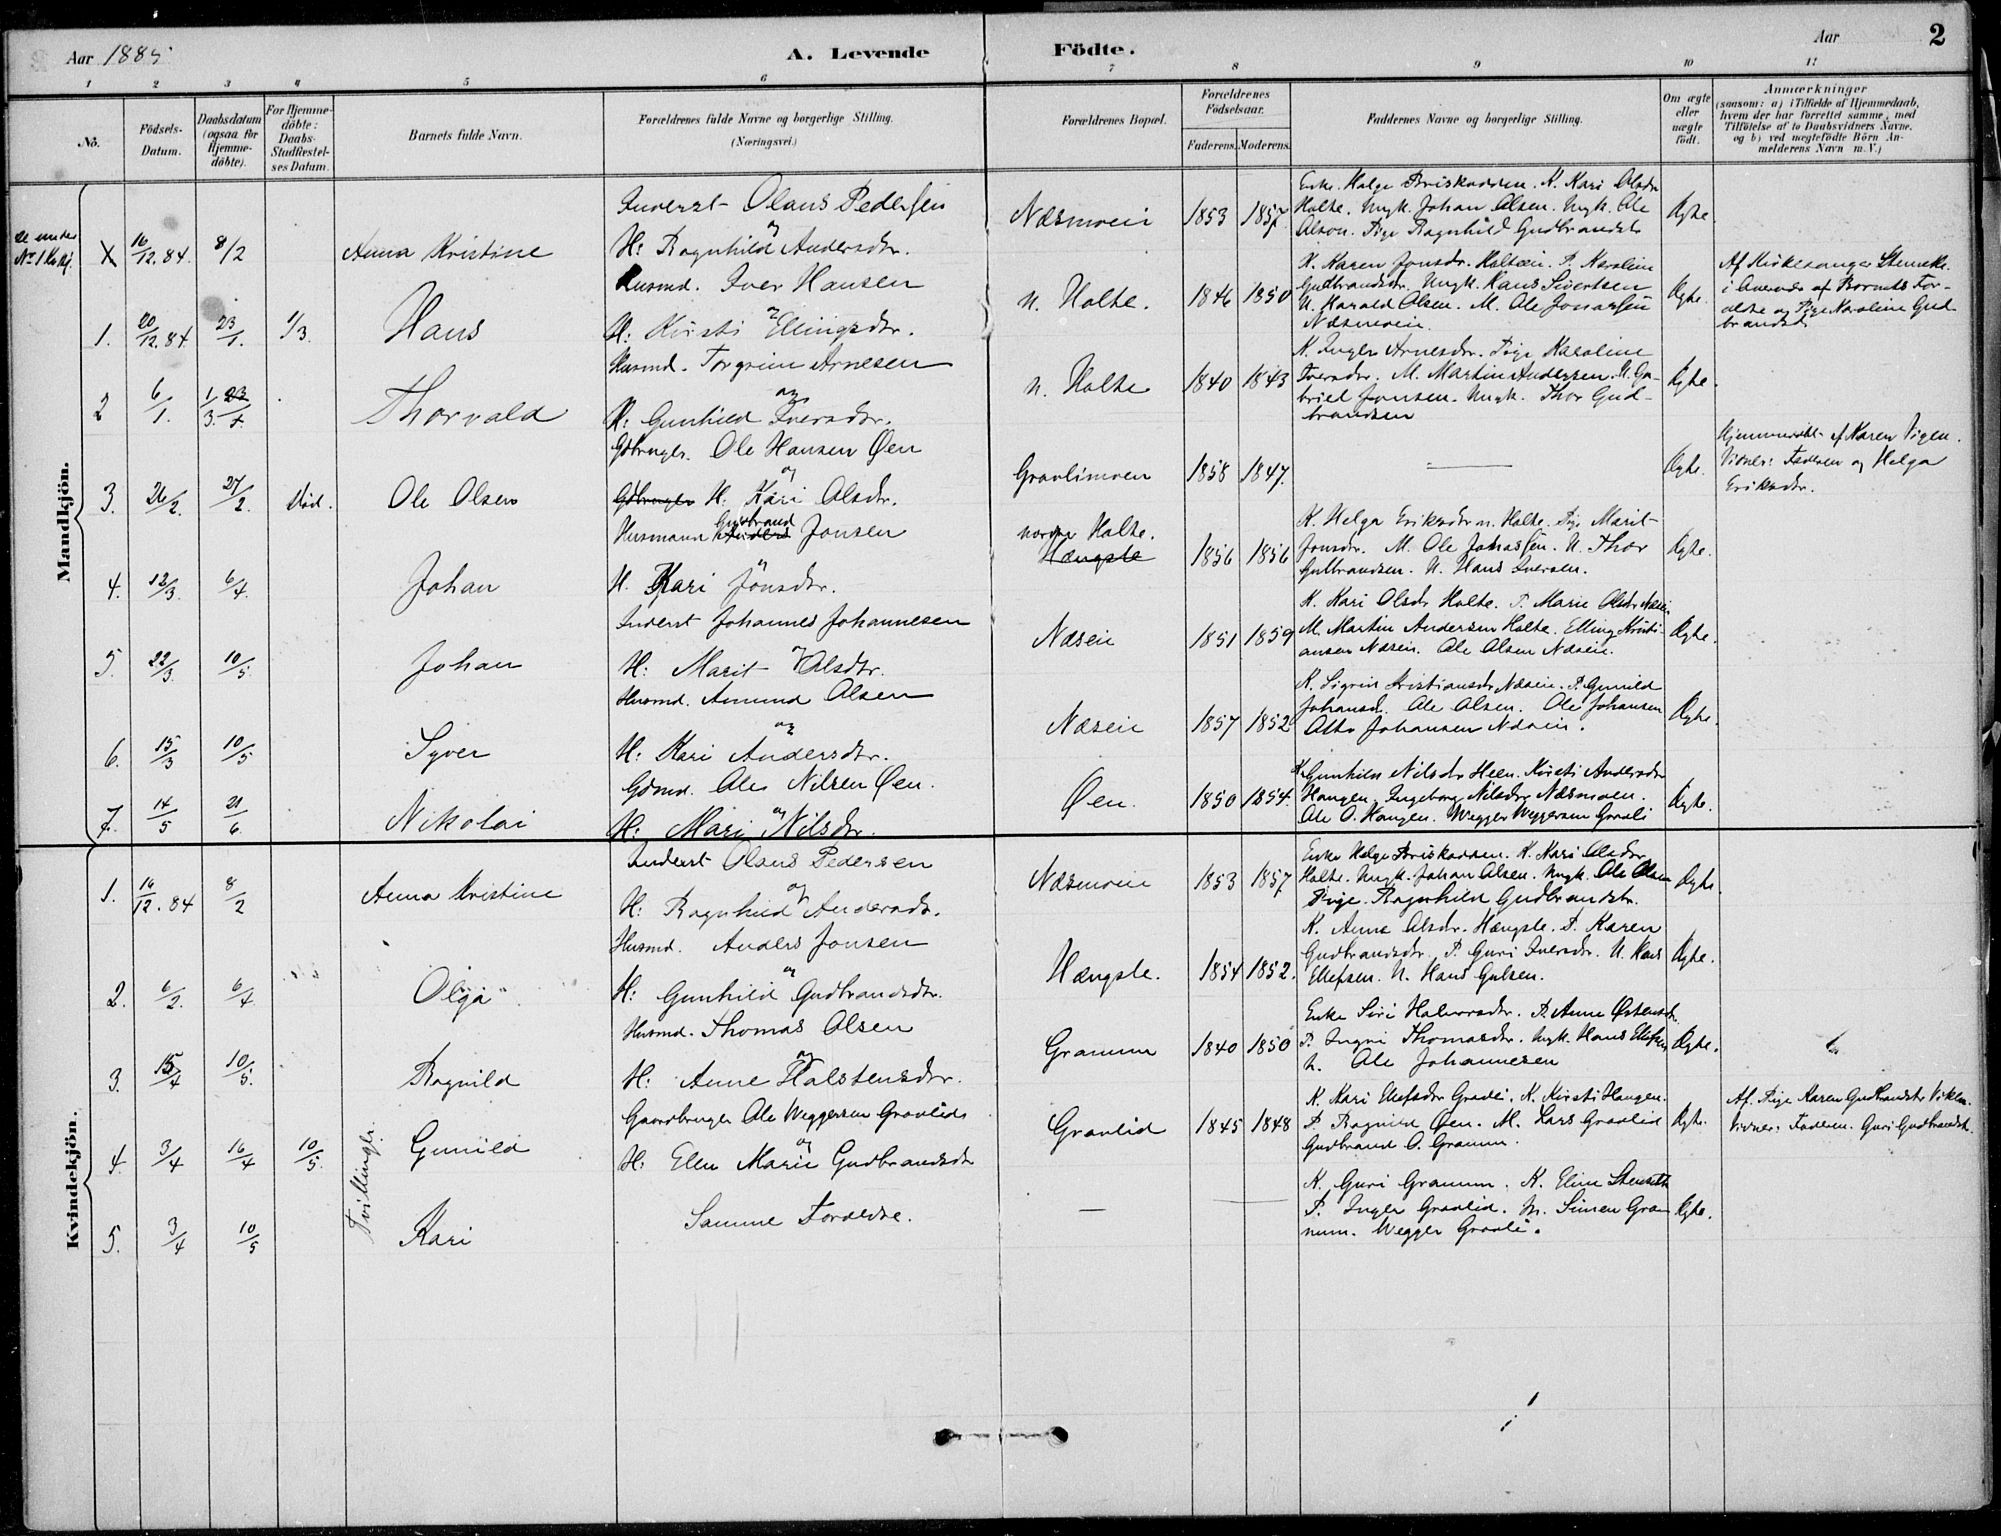 Aar 1885 A. Levende Födte. Aar 2
1 2 3 4 5 6 7 8 9 10 11
No.
Födsels-Datum.
Daabsdatum (ogsaa for Hjemme-döbte).
For Hjemme-döbte: Daabs-Stadfæstel-ses Datum.
Barnets fulde Navn.
Forældrenes fulde Navne og borgerlige Stilling. (Næringsvei.)
Forældrenes Bopæl.
Forældrenes Födselsaar.
Faderens. Moderens.
Faddernes Navne og borgerlige Stilling.
Om ægte eller uægte födt.
Anmærkninger
(saasom: a) i Tilfælde af Hjemmedaab, hvem der har forrettet samme, med Tilföielse af to Daabsvidners Navne. og b) ved uægtefödte Börn Anmelderens Navn m. V.)
Mandkjön.
Se under No 1 Kvkj.
X 16/12.84. 8/2 Anna Kristine
Inderst Olaus Pedersen
og
H: Ragnhild Andersdtr.
Næsmoen 1853 1857
Enke Helge Briskodden. K. Kari Olsdtr
Holte. Ungk. Johan Olsen. Ungk. Ole
Olsen. Pige Ragnhild Gudbrandsdtr
Ægte.
1. 20/12.84. 23/1. 1/3. Hans
Husmd. Iver Hansen
og
H: Kirsti Ellingsdtr.
n. Holte. 1846 1850
K. Karen Jonsdr. Holteen. P. Karoline
Gudbrandsdtr. Ungk. Hans Sivertsen
U. Harald Olsen. M. Ole Jonassen
Næsmoein.
Ægte.
Af Kirkesanger Stenseth
i Nærvær af Barnets For-
ældre og Pige Karoline Gud
brandsd.
2 6/1. 1/3. 23/4 Thorvald
Husmd. Torgrim Arnesen
og
K: Gunhild Iversdtr.
n. Holte 1840 1843
K. Inger Arnesdtr. Pige Karoline
Iversdtr. M. Martin Andersen. U. Ga-
briel Jonsen. Ungk. Thor Gud-
brandsen
Ægte.
3. 26/2. 27/2. død. Ole Olsen
Gdbruger. Ole Hansen Øen
og
Gdbruger H. Kari Olsdtr.
Gravlimoen 1858 1847.
Ægte.
Hjemmedøbt af Karen Vigen.
Vidner: Faderen og Helga
Eriksdtr.
4. 12/3. 6/4. Johan
Husmann Anders Gudbrand Jonsen
H. Kari Jonsdtr.
nordre Holte.
Hængsle
1856 1856
K. Helga Eriksdtr n. Holte. Pige Marit
Jonsdtr. M. Ole Johassen. U. Thor
Gulbrandsen. U. Hans Iversen.
Ægte.
5. 22/3. 10/5. Johan
Inderst Johannes Johannesen
og
H: Marit Olsdtr.
Næseie 1851 1859
K. Kari Olsdtr Holte. P. Marie Olsdtr Næsei.
M. Martin Andersen Holte. Elling Kristi-
ansen Næsein. Ole Olsen Næseie.
Ægte.
6. 15/3 10/5 Syver
Husmd. Amund Olsen
og
H: Kari Andersdtr.
Næseie 1857 1852
K. Sigrin Kristiansdr Næsein. P. Gunild
Johansd. Ole Olsen. Ole Johansen
Otto Johansen Næsein.
Ægte.
7. 14/5 21/6. Nikolai
Gdmd. Ole Nilsen Øen.
og
H: Mari Nilsdtr.
Øen. 1850 1854.
K. Gunhild Nilsdtr Heen. Kirsti Andersdtr
Haugen. Ingeborg Nilsdtr Næsmoen.
Ole O. Haugen. Wegger Weggersen Gravli
Ægte.
Kvindekjön.
1. 16/12.84 8/2 Anna Kristine
Inderst Olaus Pedersen
og
H: Ragnhild Andersdtr.
Næsmoein 1853 1857
Enke Helge Briskodden. K. Kari Olsdtr
Holte. Ungk. Johan Olsen. Ungk. Ole Olsen
Pige. Ragnhild Gudbrandsdtr.
Ægte.
2. 6/2. 6/4 Olga
Husmd. Anders Jonsen
og
H: Gunhild Gudbrandsdtr.
Hængsle. 1854 1852.
K. Anna Olsdr. Hængsle. P. Karen
Gudbrandsdtr. P. Guri Iversdtr. U. Hans
Ellefsen. U. Hans Gulsen.
Ægte.
3. 15/4 10/5. Ragnild
Husmd. Thomas Olsen
og
H: Anne Halstensdtr.
Gramm 1840 1850
Enke Siri Halvorsdtr. P. Anne Østensdr.
P. Ingri Thomasdtr. Ungk. Hans Ellefsen
U. Ole Johannesen
Ægte.
4. 3/4 16/4 10/5. Tvillinger. Gunild
Gaardbruger Ole Weggersen Gravlid
og
H: Elen Marie Gudbrandsdtr
Gravlid 1845 1848
K. Kari Ellefsdtr Gravli. K. Kirsti Haugen.
P. Ragnild Øen. M. Lars Gravlid
Gudbrand O. Gramm.
Ægte.
Af. Pige Karen Gudbrandsdtr Viken.
Vidner. Faderen. Guri Gudbrandsd.
5. 3/4 10/5 Kari
Samme Forældre.
—
K. Guri Gramm. K. Eline Stenseth
P. Inger Gravlid. M. Simen Gra-
num. Wegger Gravli.
Ægte.